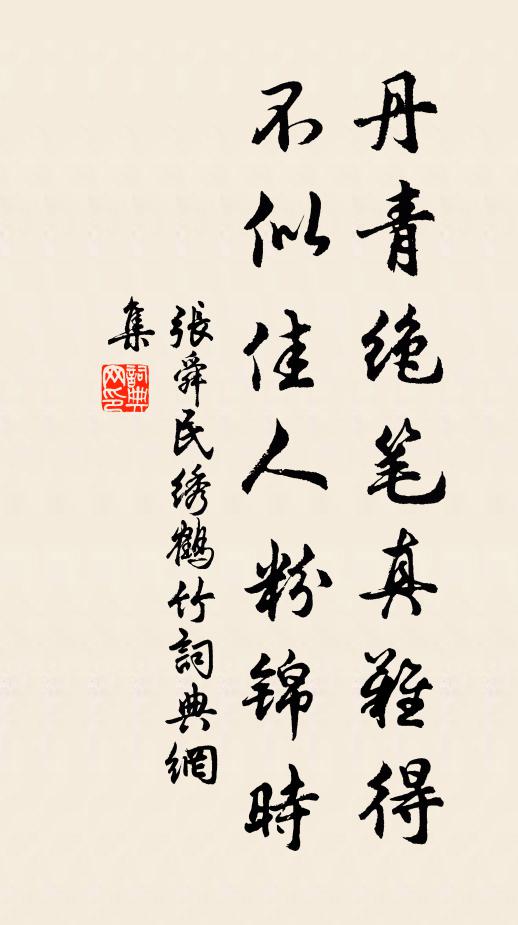 丹青绝笔真難得
不似佳人粉锦時
張舜民绣鶴竹詞典網
集
詞典
网印